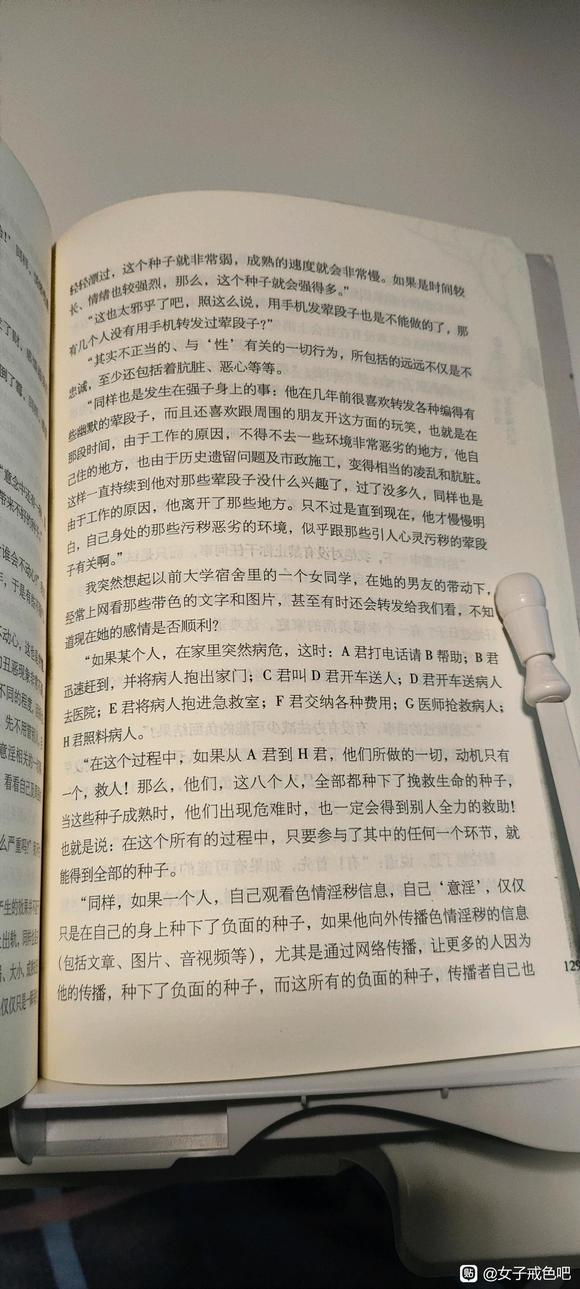 轻轻漂过，这个种子就非常弱，成熟的速度就会非常慢。如果是时间较
长、情绪也较强烈，那么，这个种子就会强得多。”
“这也太邪乎了吧，照这么说，用手机发荤段子也是不能做的了，那
有几个人没有用手机转发过荤段子？”
“其实不正当的、与‘性’有关的一切行为，所包括的远远不仅是不
忠诚，至少还包括着肮脏、恶心等等。
“同样也是发生在强子身上的事：他在几年前很喜欢转发各种编得有
些幽默的荤段子，而且还喜欢跟周围的朋友开这方面的玩笑，也就是在
那段时间，由于工作的原因，不得不去一些环境非常恶劣的地方，他自
己住的地方，也由于历史遗留问题及市政施工，变得相当的凌乱和肮脏。
这样一直持续到他对那些荤段子没什么兴趣了，过了没多久，同样也是
由于工作的原因，他离开了那些地方。只不过是直到现在，他才慢慢明
白，自己身处的那些污秽恶劣的环境，似乎跟那些引人心灵污秽的荤段
子有关啊。”
我突然想起以前大学宿舍里的一个女同学，在她的男友的带动下，
经常上网看那些带色的文字和图片，甚至有时还会转发给我们看，不知
道现在她的感情是否顺利？
“如果某个人，在家里突然病危，这时：A君打电话请B帮助；B君
迅速赶到，并将病人抱出家门；C君叫D君开车送人；D君开车送病人
去医院；E君将病人抱进急救室；F君交纳各种费用；G医师抢救病人；
H君照料病人。
“在这个过程中，如果从A君到H君，他们所做的一切，动机只有
一个，救人！那么，他们，这八个人，全部都种下了挽救生命的种子，
当这些种子成熟时，他们出现危难时，也一定会得到别人全力的救助！
也就是说：在这个所有的过程中，只要参与了其中的任何一个环节，就
能得到全部的种子。
“同样，如果一个人，自己观看色情淫秽信息，自己‘意淫’，仅仅
只是在自己的身上种下了负面的种子，如果他向外传播色情淫秽的信息
（包括文章、图片、音视频等），尤其是通过网络传播，让更多的人因为
他的传播，种下了负面的种子，而这所有的负面的种子，传播者自己也
129
贴 @女子戒色吧